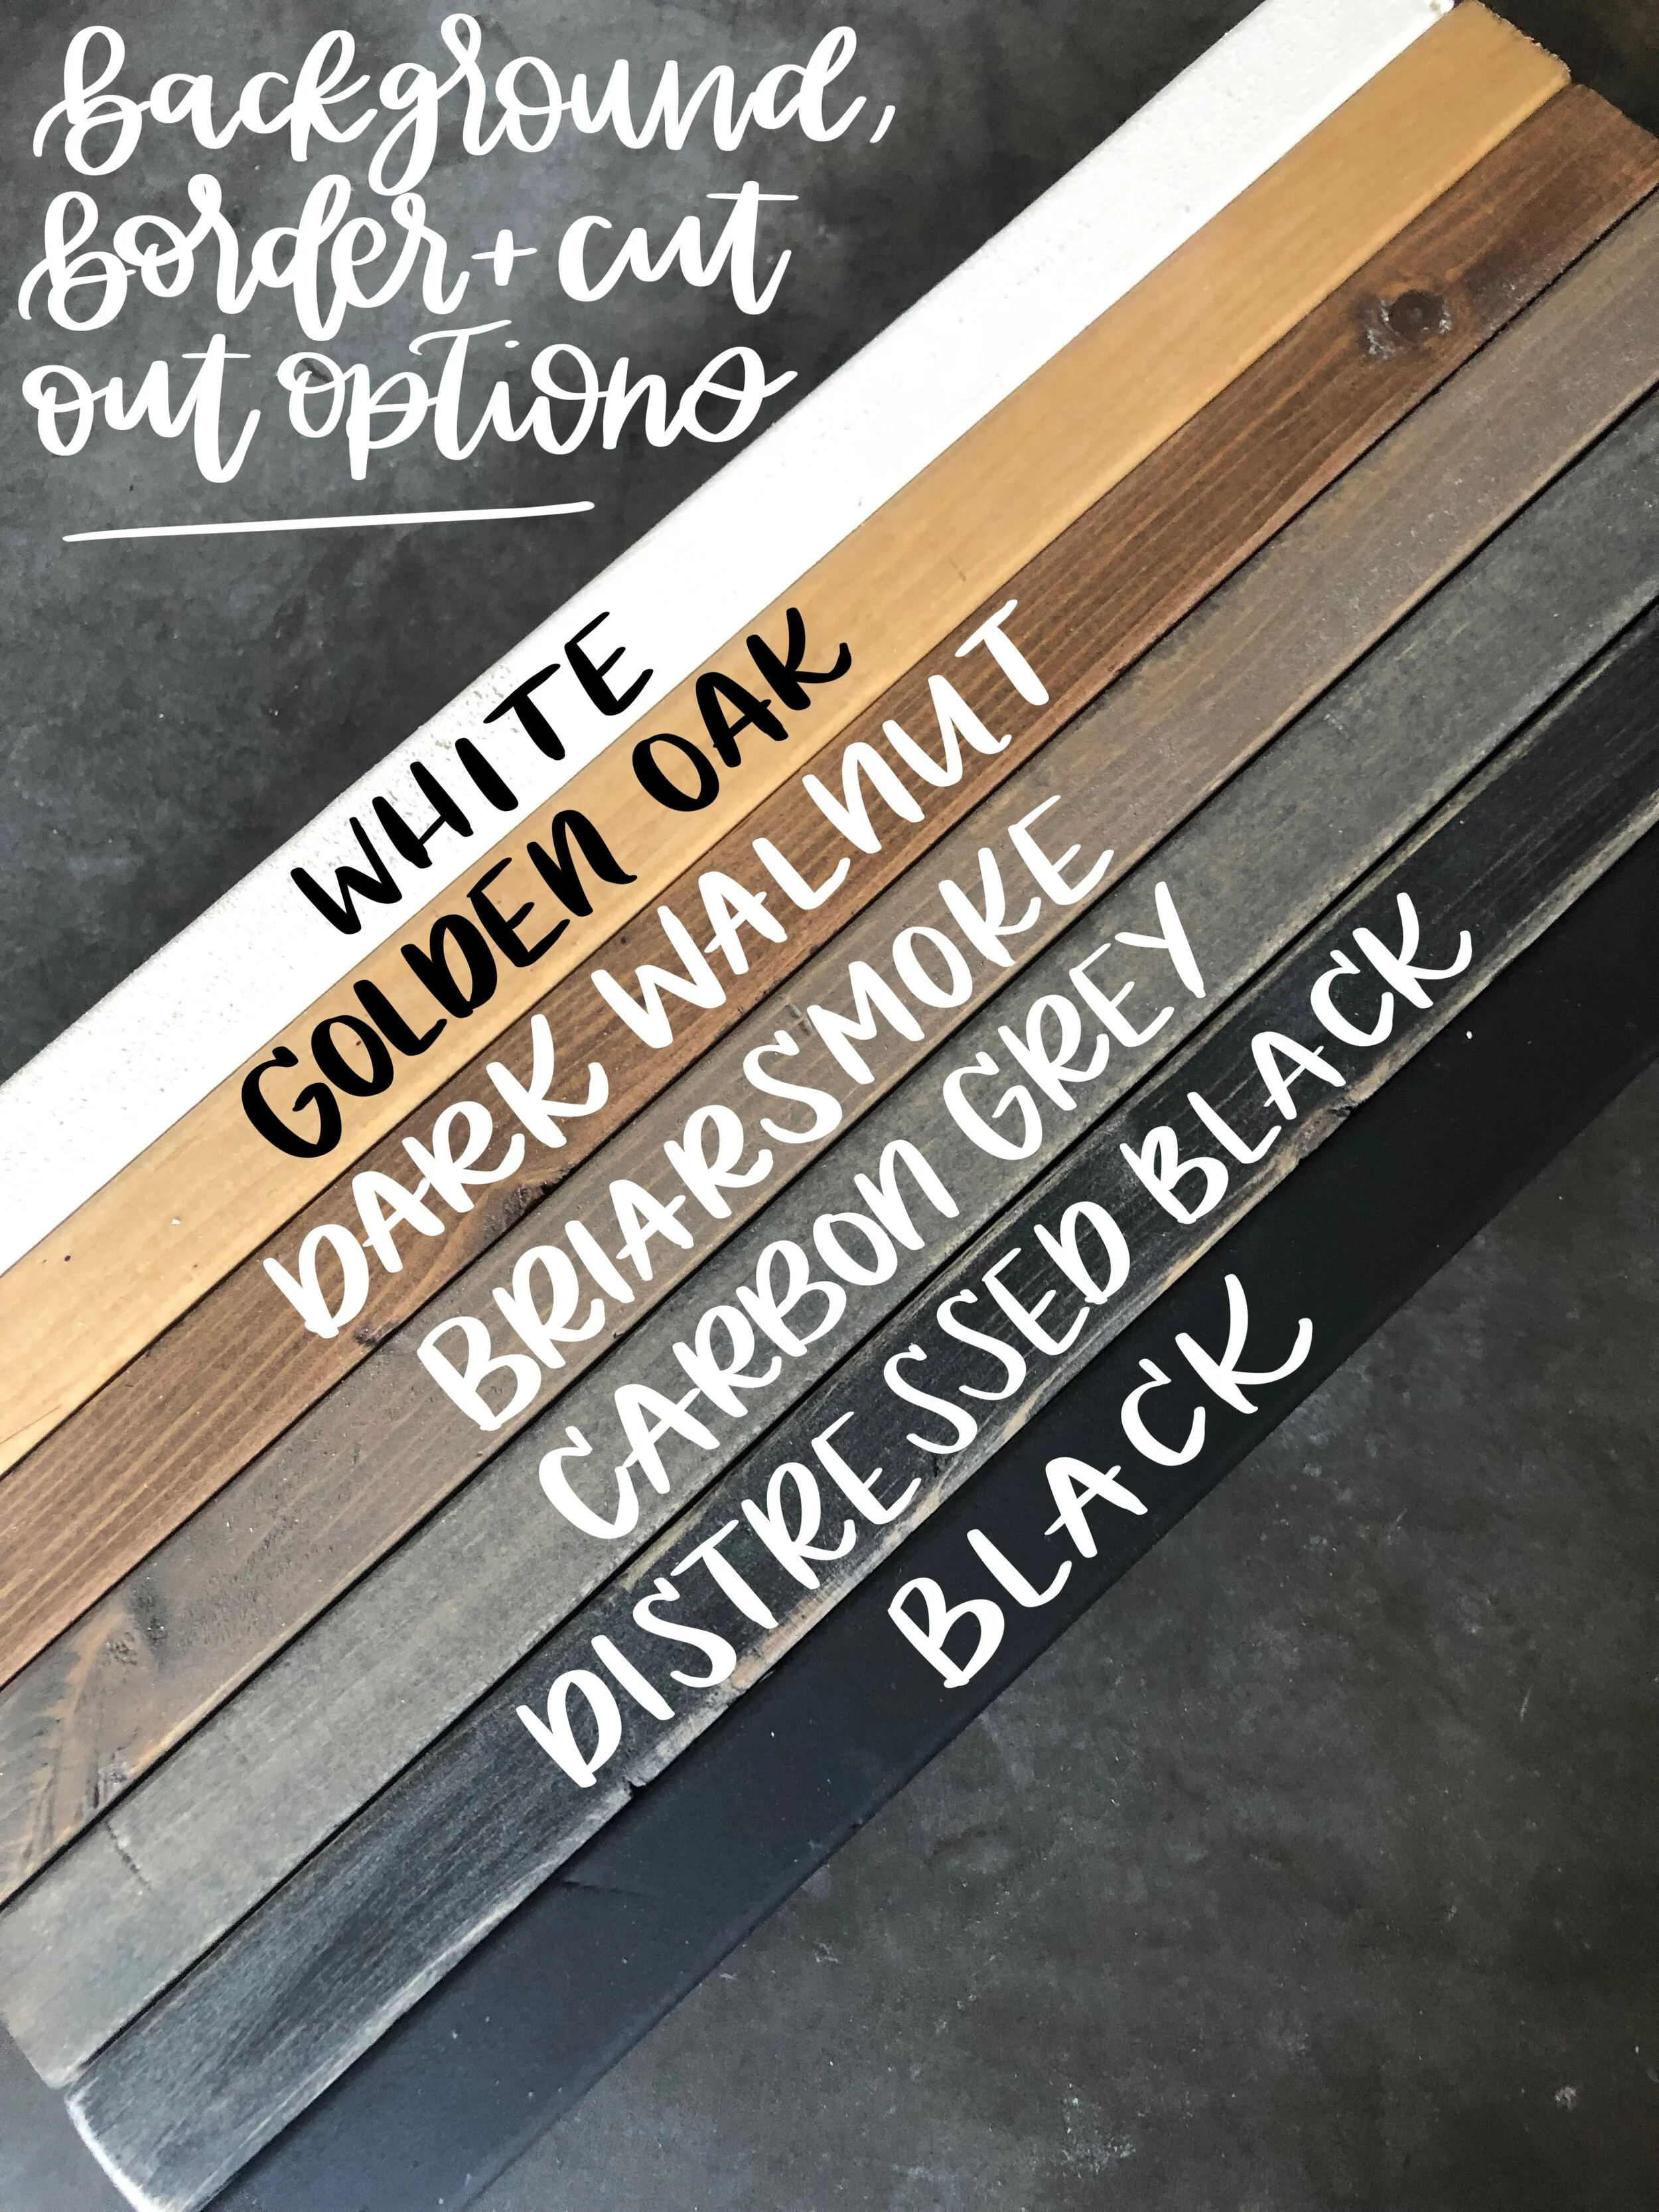 background,
border + cut
out options
WHITE
GOLDEN OAK
DARK WALNUT
BRIARSMOKE
CARBON GREY
DISTRESSED BLACK
BLACK